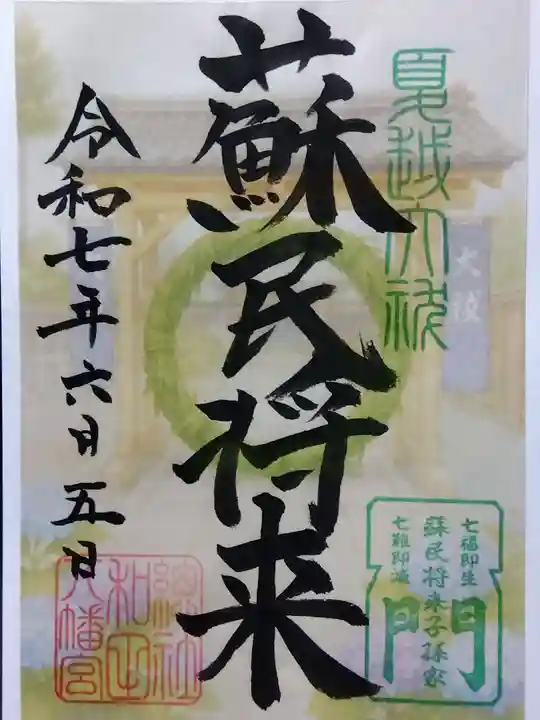 夏越大祓
大祓
蘇民将来
令和七年六月五日
七福即生
蘇民将来子孫家
七難即滅
門
總社
和田
八幡宮